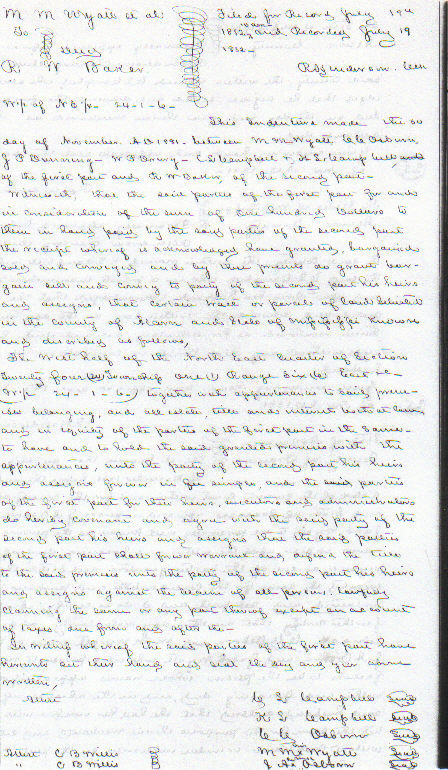 M M Wyatt et al
To
Deed
R W Baker
Filed for Record July 19th
1882, and Recorded July 19
1882
R Henderson, Clk
W/2 of NE/4 24-1-6-
This Indenture made the 30
day of November AD 1881 between M M Wyatt, C C Osborn,
J P Dunning W P Drury C L Campbell & K L Campbell
of the first part and R W Baker of the second part
Witnesseth that the said parties of the first part for and
in consideration of the sum of One hundred Dollars to
them in hand paid by the said parties of the second part
the receipt whereof is acknowledged have granted, bargained
sold and conveyed and by these presents do grant bar-
gain sell and convey to party of the second part his heirs
and assigns, that certain tract or parcel of land situated
in the County of and State of Mississippi known
and described as follows,
The West half of the North East Quarter of Section
Twenty four (24) Township One (1) Range Six (6) East
(W/2 24-1-6-) together with appurtenances to said premi-
ses belonging, and all estate, title and interest both at law
and in equity of the parties of the first part in the same
to have and to hold the said granted premises with the
appurtenances, unto the party of the second part his heirs
and assigns forever in fee simple, and the said parties
of the first part for their heirs, executors and administrators
do hereby covenant and agree with the said party of the
second part his heirs and assigns that the said parties
of the first part shall forever warrant and defend the title
to the said premises unto the party of the second part his heirs
and assigns against the claim of all persons lawfully
claiming the same or any part thereof except on account
of taxes due from and after the
In witness whereof the said parties of the first part have
hereunto set their hand and seal the day and year above
written,
Attest
C L Campbell Seal
K L Campbell Seal
C C Osborn Seal
Attest C B Mills M M Wyatt Seal
" C B Mills J A Osborn Seal